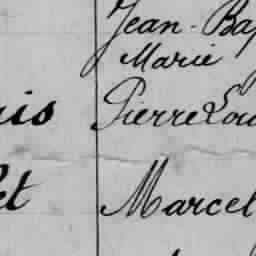 Jean-Bap
Marie
is Pierre Lou
et Marcel